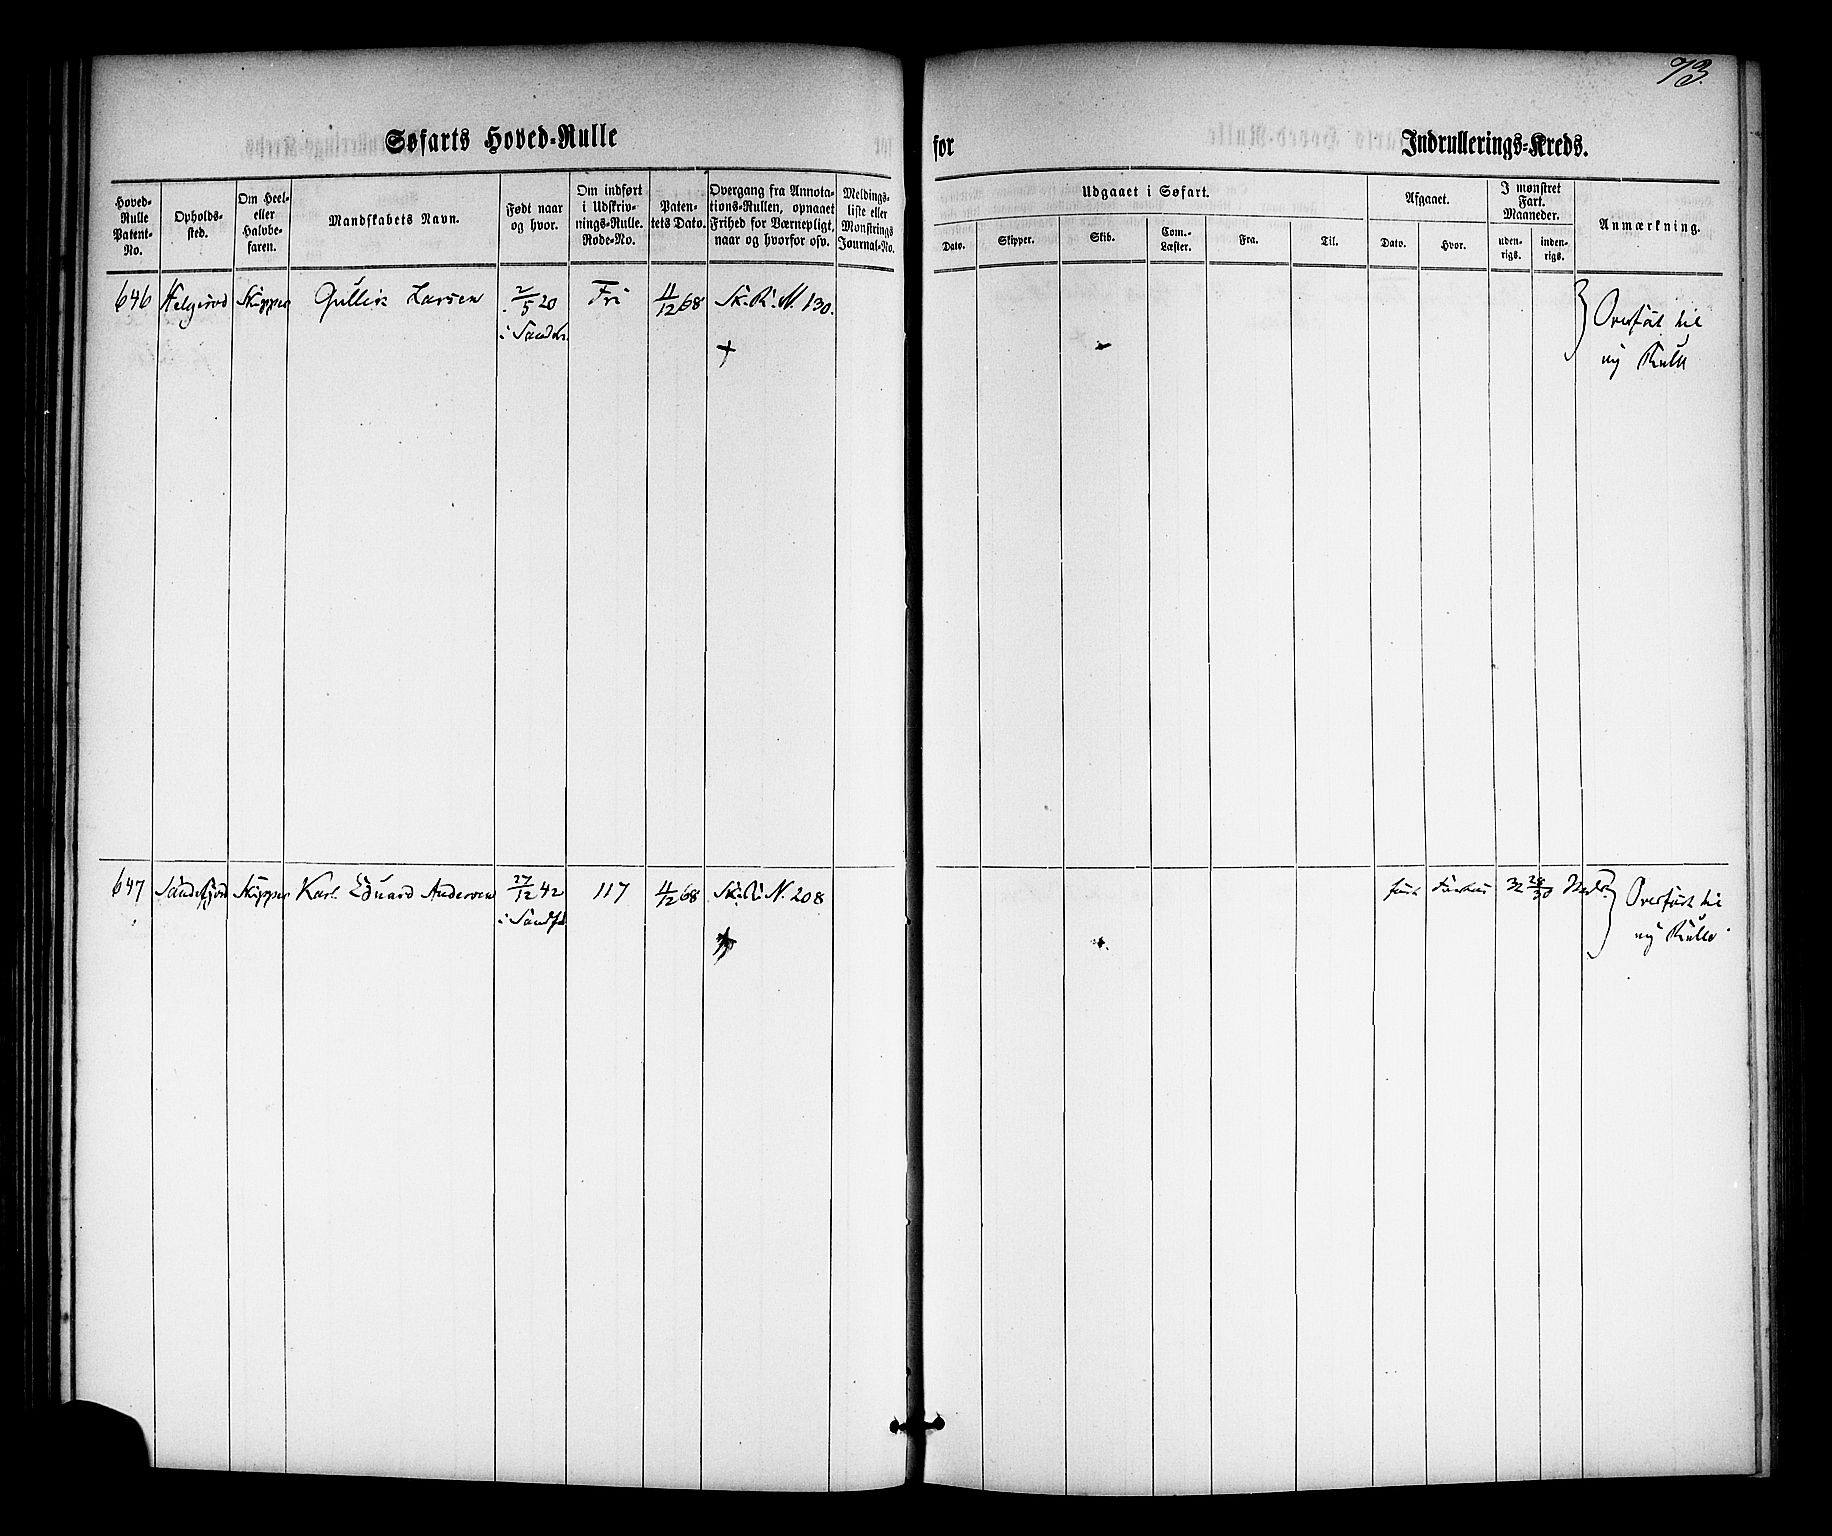 73.
Søfarts Hoved-Rulle
for
Indrullerings-Kreds.
Hoved-
Rulle
Patent-
No.
Opholds-
sted.
Om Heel-
eller
Halvbe-
faren.
Mandskabets Navn.
Født naar
og hvor.
Om indført
i Udskriv-
nings-Rulle.
Rode-No.
Paten-
tets Dato.
Overgang fra Annota-
tions-Rullen, opnaaet
Frihed for Værnepligt,
naar og hvorfor osv.
Meldings-
liste eller
Mønstrings
Journal-No.
Udgaaet i Søfart.
Dato.
Skipper.
Skib.
Com.-
Læster.
Fra.
Til.
Afgaaet.
Dato.
Hvor.
I mønstret
Fart.
Maaneder.
uden-
rigs.
inden-
rigs.
Anmærkning.
646 Skipper Gullik Larsen 2/5 20 Fri 4/12 68 Sk. R. N. 130.
Overført til
ny Rulle
647 Sandefjord Skipper Karl Eduard Andersen 27/12 42 117 4/12 68 Sk. R. N. 208
i Sandfd
32 28/30 Overført til
ny Rulle